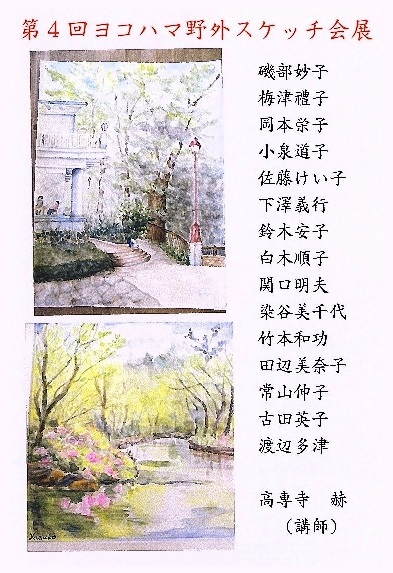 第4回ヨコハマ野外スケッチ会展
磯部妙子
梅津禮子
岡本栄子
小泉道子
佐藤けい子
下澤義行
鈴木安子
白木順子
関口明夫
染谷美千代
竹本和功
田辺美奈子
常山伸子
古田英子
渡辺多津
高専寺 赫
(講師)